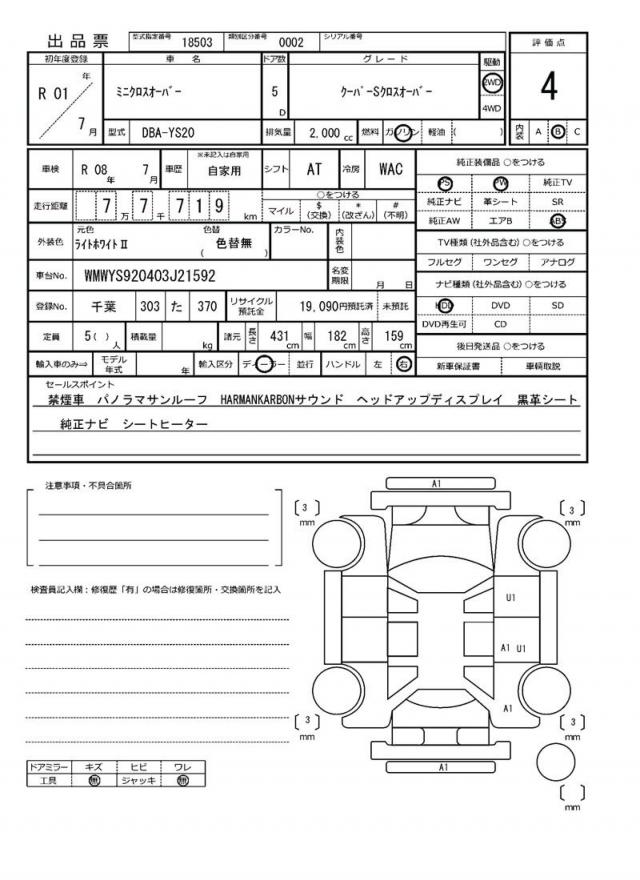 出品票 型式指定番号 18503 類別区分番号 0002 シリアル番号
評価点
初年度登録 車名 ドア数 グレード 駆動
R 01 年 7 月 ミニクロスオーバー 5 D クーパーSクロスオーバー 2WD 4WD
4
型式 DBA-YS20 排気量 2,000 cc 燃料 ガソリン 軽油 ( )
内装 A B C
車検 R 08 年 7 月 車歴 ※未記入は自家用 自家用 シフト AT 冷房 WAC
純正装備品 ○をつける
PS PW 純正TV
走行距離 7 万 7 千 7 1 9 km
○をつける
マイル $ (交換) * (改ざん) # (不明)
純正ナビ 革シート SR
純正AW エアB ABS
外装色 元色 ライトホワイトⅡ 色替 ( 色替無 ) カラーNo. 内装色
TV種類 (社外品含む) ○をつける
フルセグ ワンセグ アナログ
車台No. WMWYS920403J21592 名変期限 月 日
ナビ種類 (社外品含む) ○をつける
HDD DVD SD
登録No. 千葉 303 た 370 リサイクル預託金 19,090円預託済 未預託
DVD再生可 CD
定員 5( ) 人 積載量 kg 諸元 長さ 431 cm 幅 182 cm 高さ 159 cm
後日発送品 ○をつける
輸入車のみ⇒ モデル年式 年 輸入区分 ディーラー 並行 ハンドル 左 右
新車保証書 車輌取説
セールスポイント
禁煙車 パノラマサンルーフ HARMANKARBONサウンド ヘッドアップディスプレイ 黒革シート
純正ナビ シートヒーター
注意事項・不具合箇所
検査員記入欄:修復歴「有」の場合は修復箇所・交換箇所を記入
A1
[ 3 ] mm
[ 3 ] mm
U1
A1 U1
A1
[ 3 ] mm
[ 3 ] mm
A1
[ ] mm
ドアミラー キズ ヒビ ワレ
工具 無 ジャッキ 無